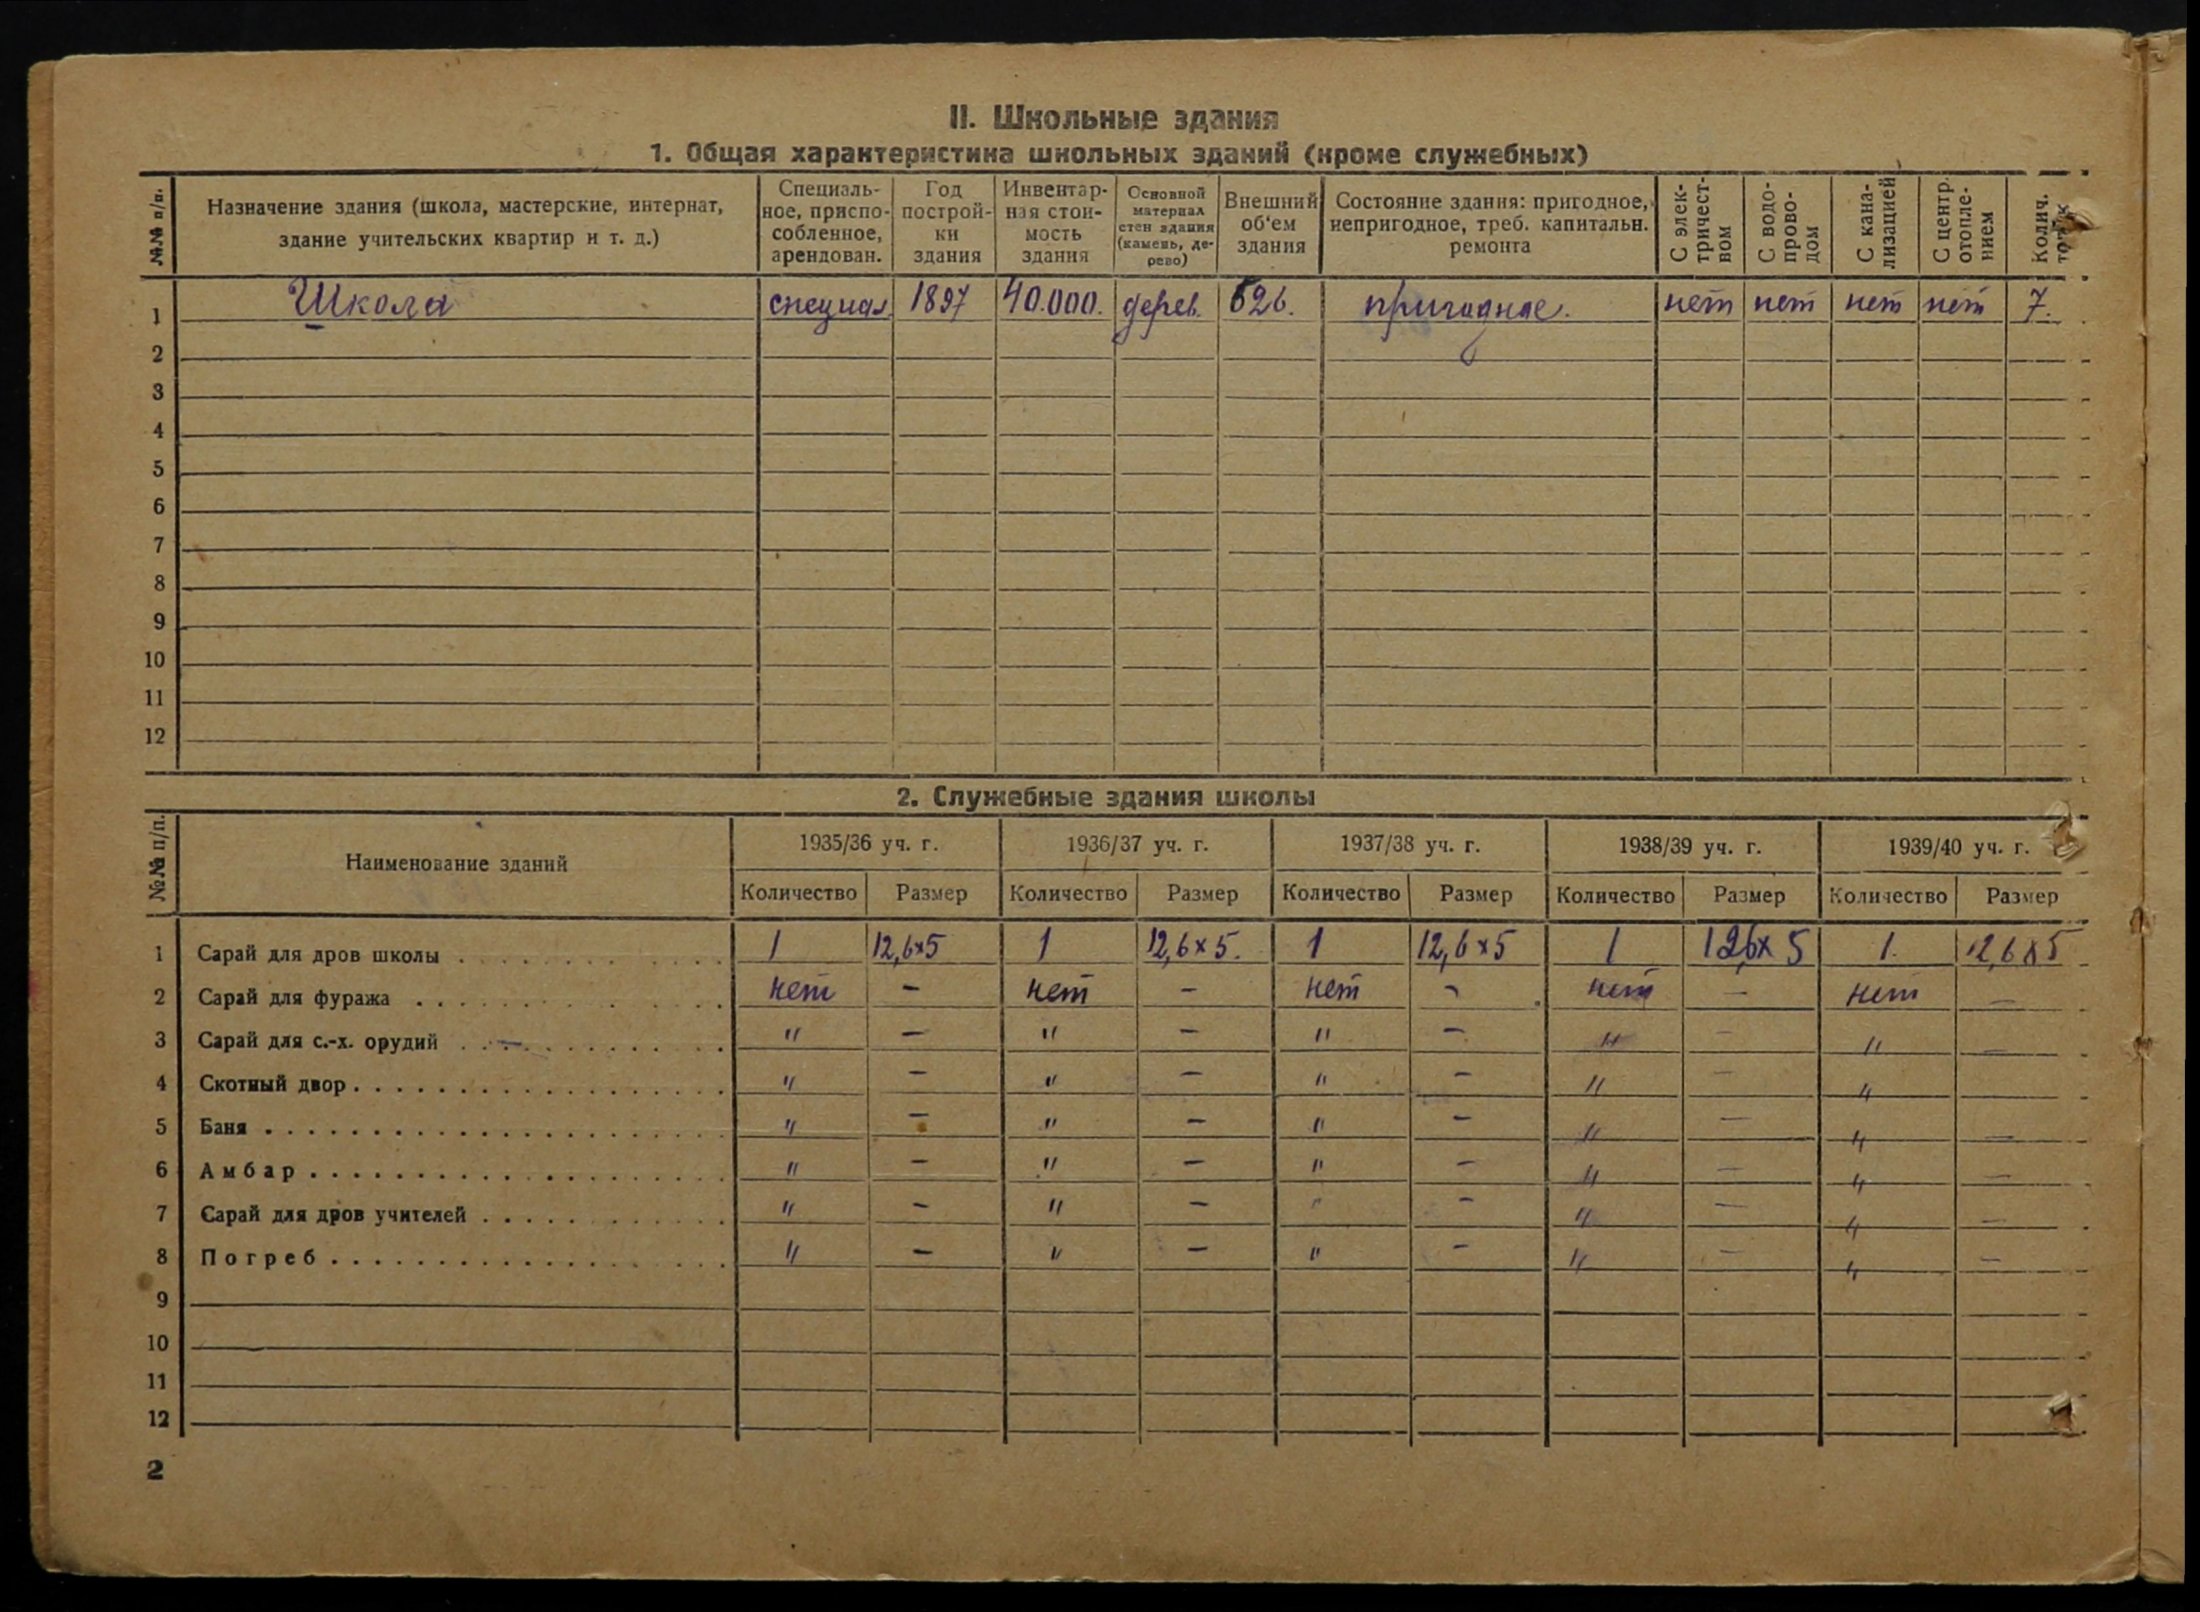 II. Школьные здания
1. Общая характеристика школьных зданий (кроме служебных)
№№ п/п. Назначение здания (школа, мастерские, интернат, здание учительских квартир и т. д.) Специальное, приспособленное, арендован. Год постройки здания Инвентарная стоимость здания Основной материал стен здания (камень, дерево) Внешний об'ем здания Состояние здания: пригодное, непригодное, треб. капитальн. ремонта С электричеством С водопроводом С канализацией С центр. отоплением Колич.
1 Школа специал. 1897 40.000. дерев. 626. пригодное. нет нет нет нет 7.
2
3
4
5
6
7
8
9
10
11
12
2. Служебные здания школы
№№ п/п. Наименование зданий 1935/36 уч. г. 1936/37 уч. г. 1937/38 уч. г. 1938/39 уч. г. 1939/40 уч. г.
Количество Размер Количество Размер Количество Размер Количество Размер Количество Размер
1 Сарай для дров школы 1 12,6х5 1 12,6х5. 1 12,6х5 1 12,6х5 1. 12,6х5
2 Сарай для фуража нет – нет – нет – нет – нет –
3 Сарай для с.-х. орудий " – " – " – " – " –
4 Скотный двор " – " – " – " – "
5 Баня " – " – " – " – " –
6 Амбар " – " – " – " – " –
7 Сарай для дров учителей " – " – " – " – " –
8 Погреб " – " – " – " – " –
9
10
11
12
2